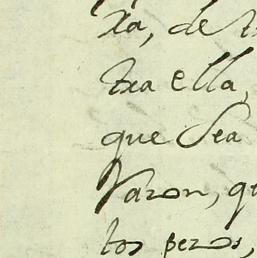 xa, de
txa ella,
que Sea
Varon, qu
los pezos,